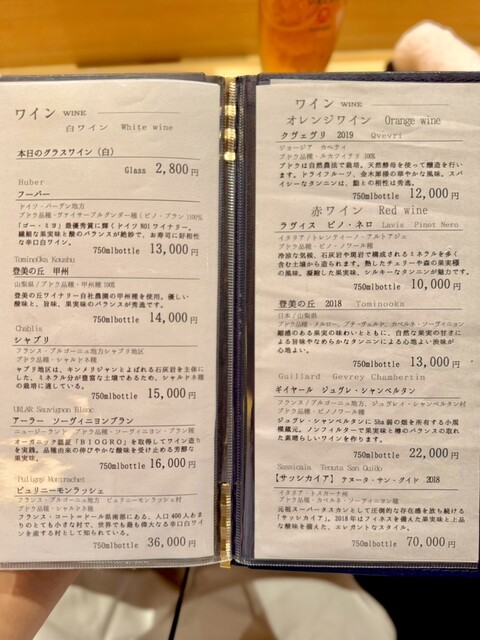 ワイン WINE
白ワイン White wine
本日のグラスワイン（白）
Glass 2,800円
Huber
フーバー
ドイツ・バーデン地方
ブドウ品種・ヴァイサーブルグンダー種（ピノ・ブラン）100%
「ゴー・ミヨ」最優秀賞に輝くドイツNO1ワイナリー。
繊細な果実味と酸のバランスが絶妙で、お寿司に好相性
な辛口白ワイン。
750mlbottle 13,000円
Tominooka Koushu
登美の丘 甲州
山梨県/ブドウ品種・甲州種 100%
登美の丘ワイナリー自社農園の甲州種を使用。優しい
酸味と、旨味、果実味のバランスが秀逸です。
750mlbottle 14,000円
Chablis
シャブリ
フランス・ブルゴーニュ地方シャブリ地区
ブドウ品種・シャルドネ種
ャブリ地区は、キンメリジャンとよばれる石灰岩を主体にし
た、ミネラル分が豊富な土壌であるため、シャルドネ種
の栽培に適している。
750mlbottle 15,000円
Sauvignon Blanc
アーラー ソーヴィニヨンブラン
ニュージーランド ブドウ品種・ソーヴィニヨン・ブラン種
オーガニック認証「BIOGRO」を取得してワイン造り
を実践。品種由来の伸びやかな酸味を受け止める芳醇な
果実味。
750mlbottle 16,000円
Puligny Montrachet
ピュリニーモンラッシェ
フランス・ブルゴーニュ地方 ピュリニーモンラッシェ村
ブドウ品種・シャルドネ種
フランス・コート＝ドール県南部にある、人口400人あま
りのとても小さな村で、世界でも最も偉大なる辛口白ワイ
ンを産する村として知られている。
750mlbottle 36,000円
ワイン WINE
オレンジワイン Orange wine
クヴェヴリ 2019 Qvevri
ジョージア カヘティ
ブドウ品種・ルカツィテリ 100%
ブドウは自然農法で栽培。天然酵母を使って醸造を行い
ます。ドライフルーツ、金木犀様の華やかな風味。スパ
イシーなタンニンは、鮨との相性は秀逸。
750mlbottle 12,000円
赤ワイン Red wine
ラヴィス ピノ・ネロ Lavis Pinot Nero
イタリア/トレンティーノ・アルトアジェ
ブドウ品種・ピノ・ノワール種
冷涼な気候、石灰岩や斑岩で構成されるミネラルを多く
含む土壌から造られます。熟したチェリーや森の果実様
の風味。凝縮した果実味、シルキーなタンニンが魅力です。
750mlbottle 10,000円
登美の丘 2018 Tominooka
日本/山梨県
ブドウ品種・メルロー、プティヴェルド、カベルネ・ソーヴィニヨン
緻密のある果実の味わいとともに、自然な果実の甘さに
よる旨味やなめらかなタンニンによる心地よい余韻が
心地よい。
750mlbottle 13,000円
Guillard Gevrey Chambertin
ギイヤール ジュヴレ・シャンベルタン
フランス/ブルゴーニュ地方、ジュヴレイ・シャンベルタン村
ブドウ品種・ピノノワール種
ジュヴレ・シャンベルタンに5ha弱の畑を所有する小規
模蔵元。ノンフィルターで果実味と樽のバランスの取れ
た素晴らしいワインを作ります。
750mlbottle 22,000円
Sassicaia Tenuta San Guido
【サッシカイア】テヌータ・サン・グイド 2018
イタリア・トスカーナ州
ブドウ品種・カベルネ・ソーヴィニヨン種
元祖スーパータスカンとして圧倒的な存在感を放ち続ける
「サッシカイア」。2018年はフィネスを備えた果実味と上品
な酸味を備えた、エレガントなスタイル。
750mlbottle 70,000円